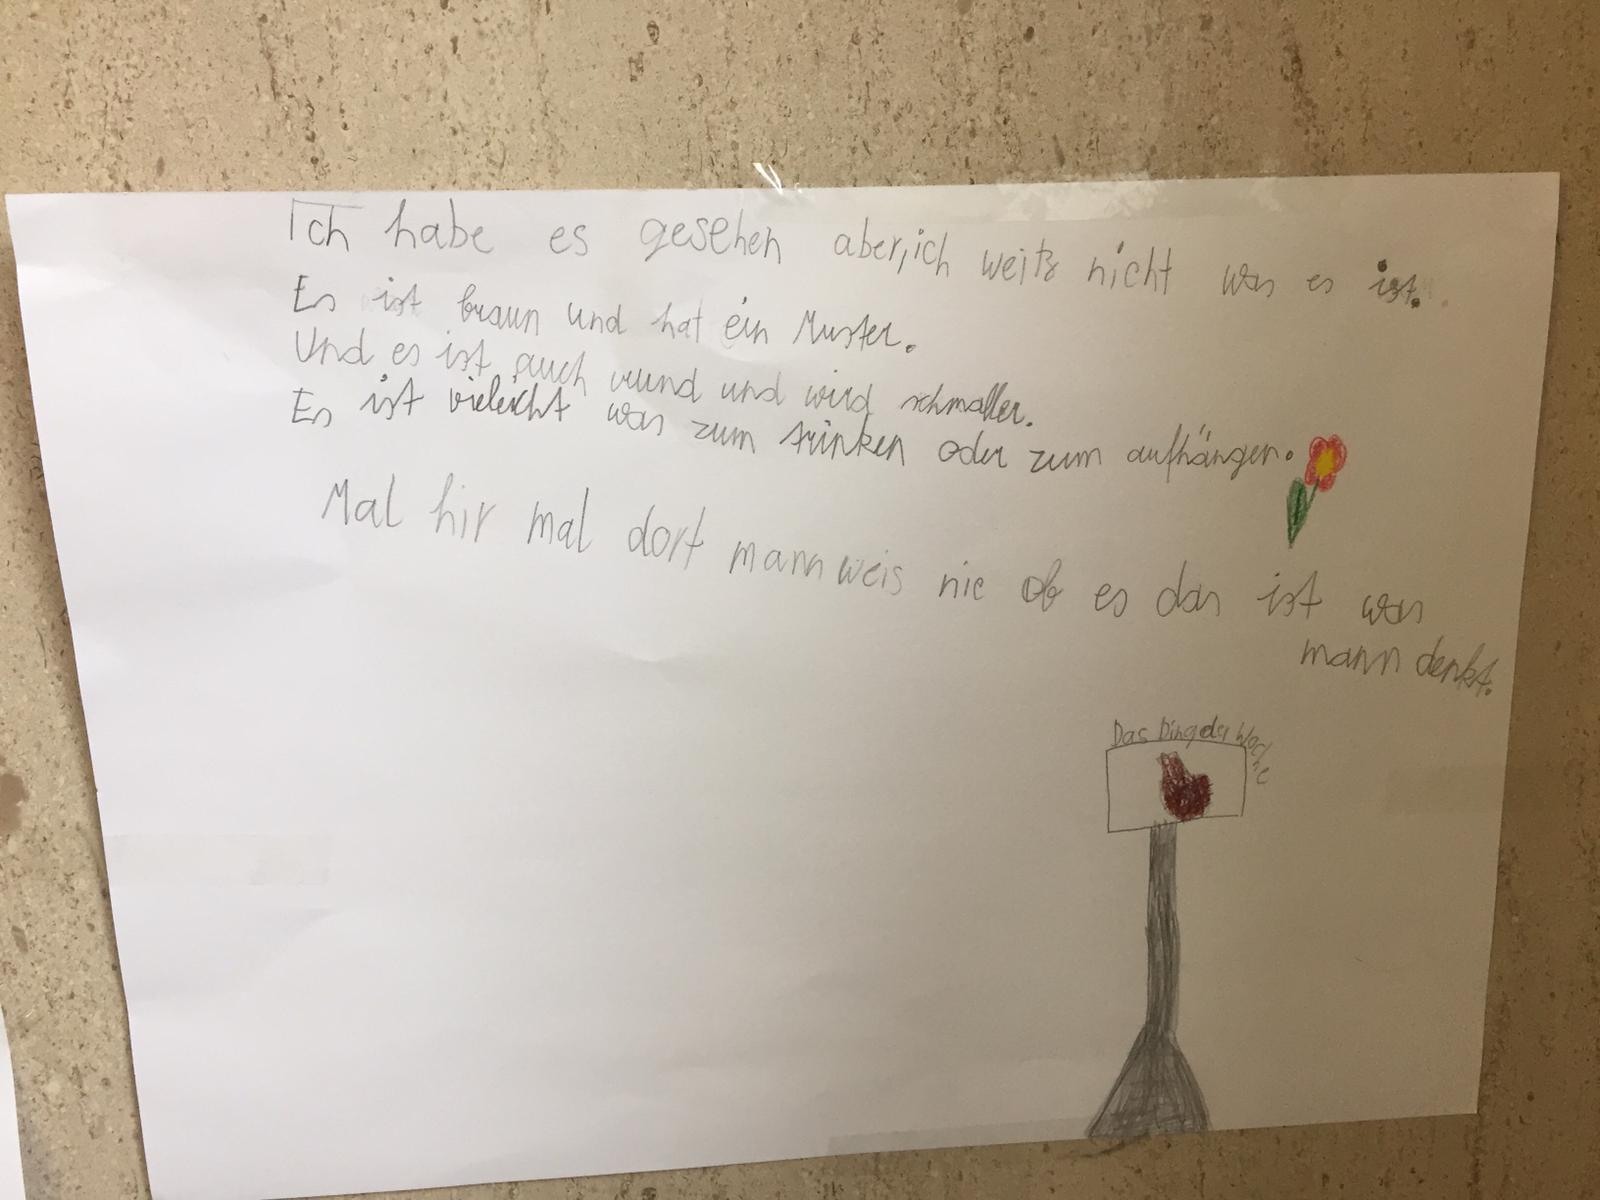 Ich habe es gesehen aber, ich weits nicht was es ist.
Es ist braun und hat ein Muster.
Und es ist auch rund und wird schmaller.
Es ist vieleicht was zum trinken oder zum aufhängen.
Mal hir mal dort mann weis nie ob es das ist was
mann denkt.
Das Ding der Woche